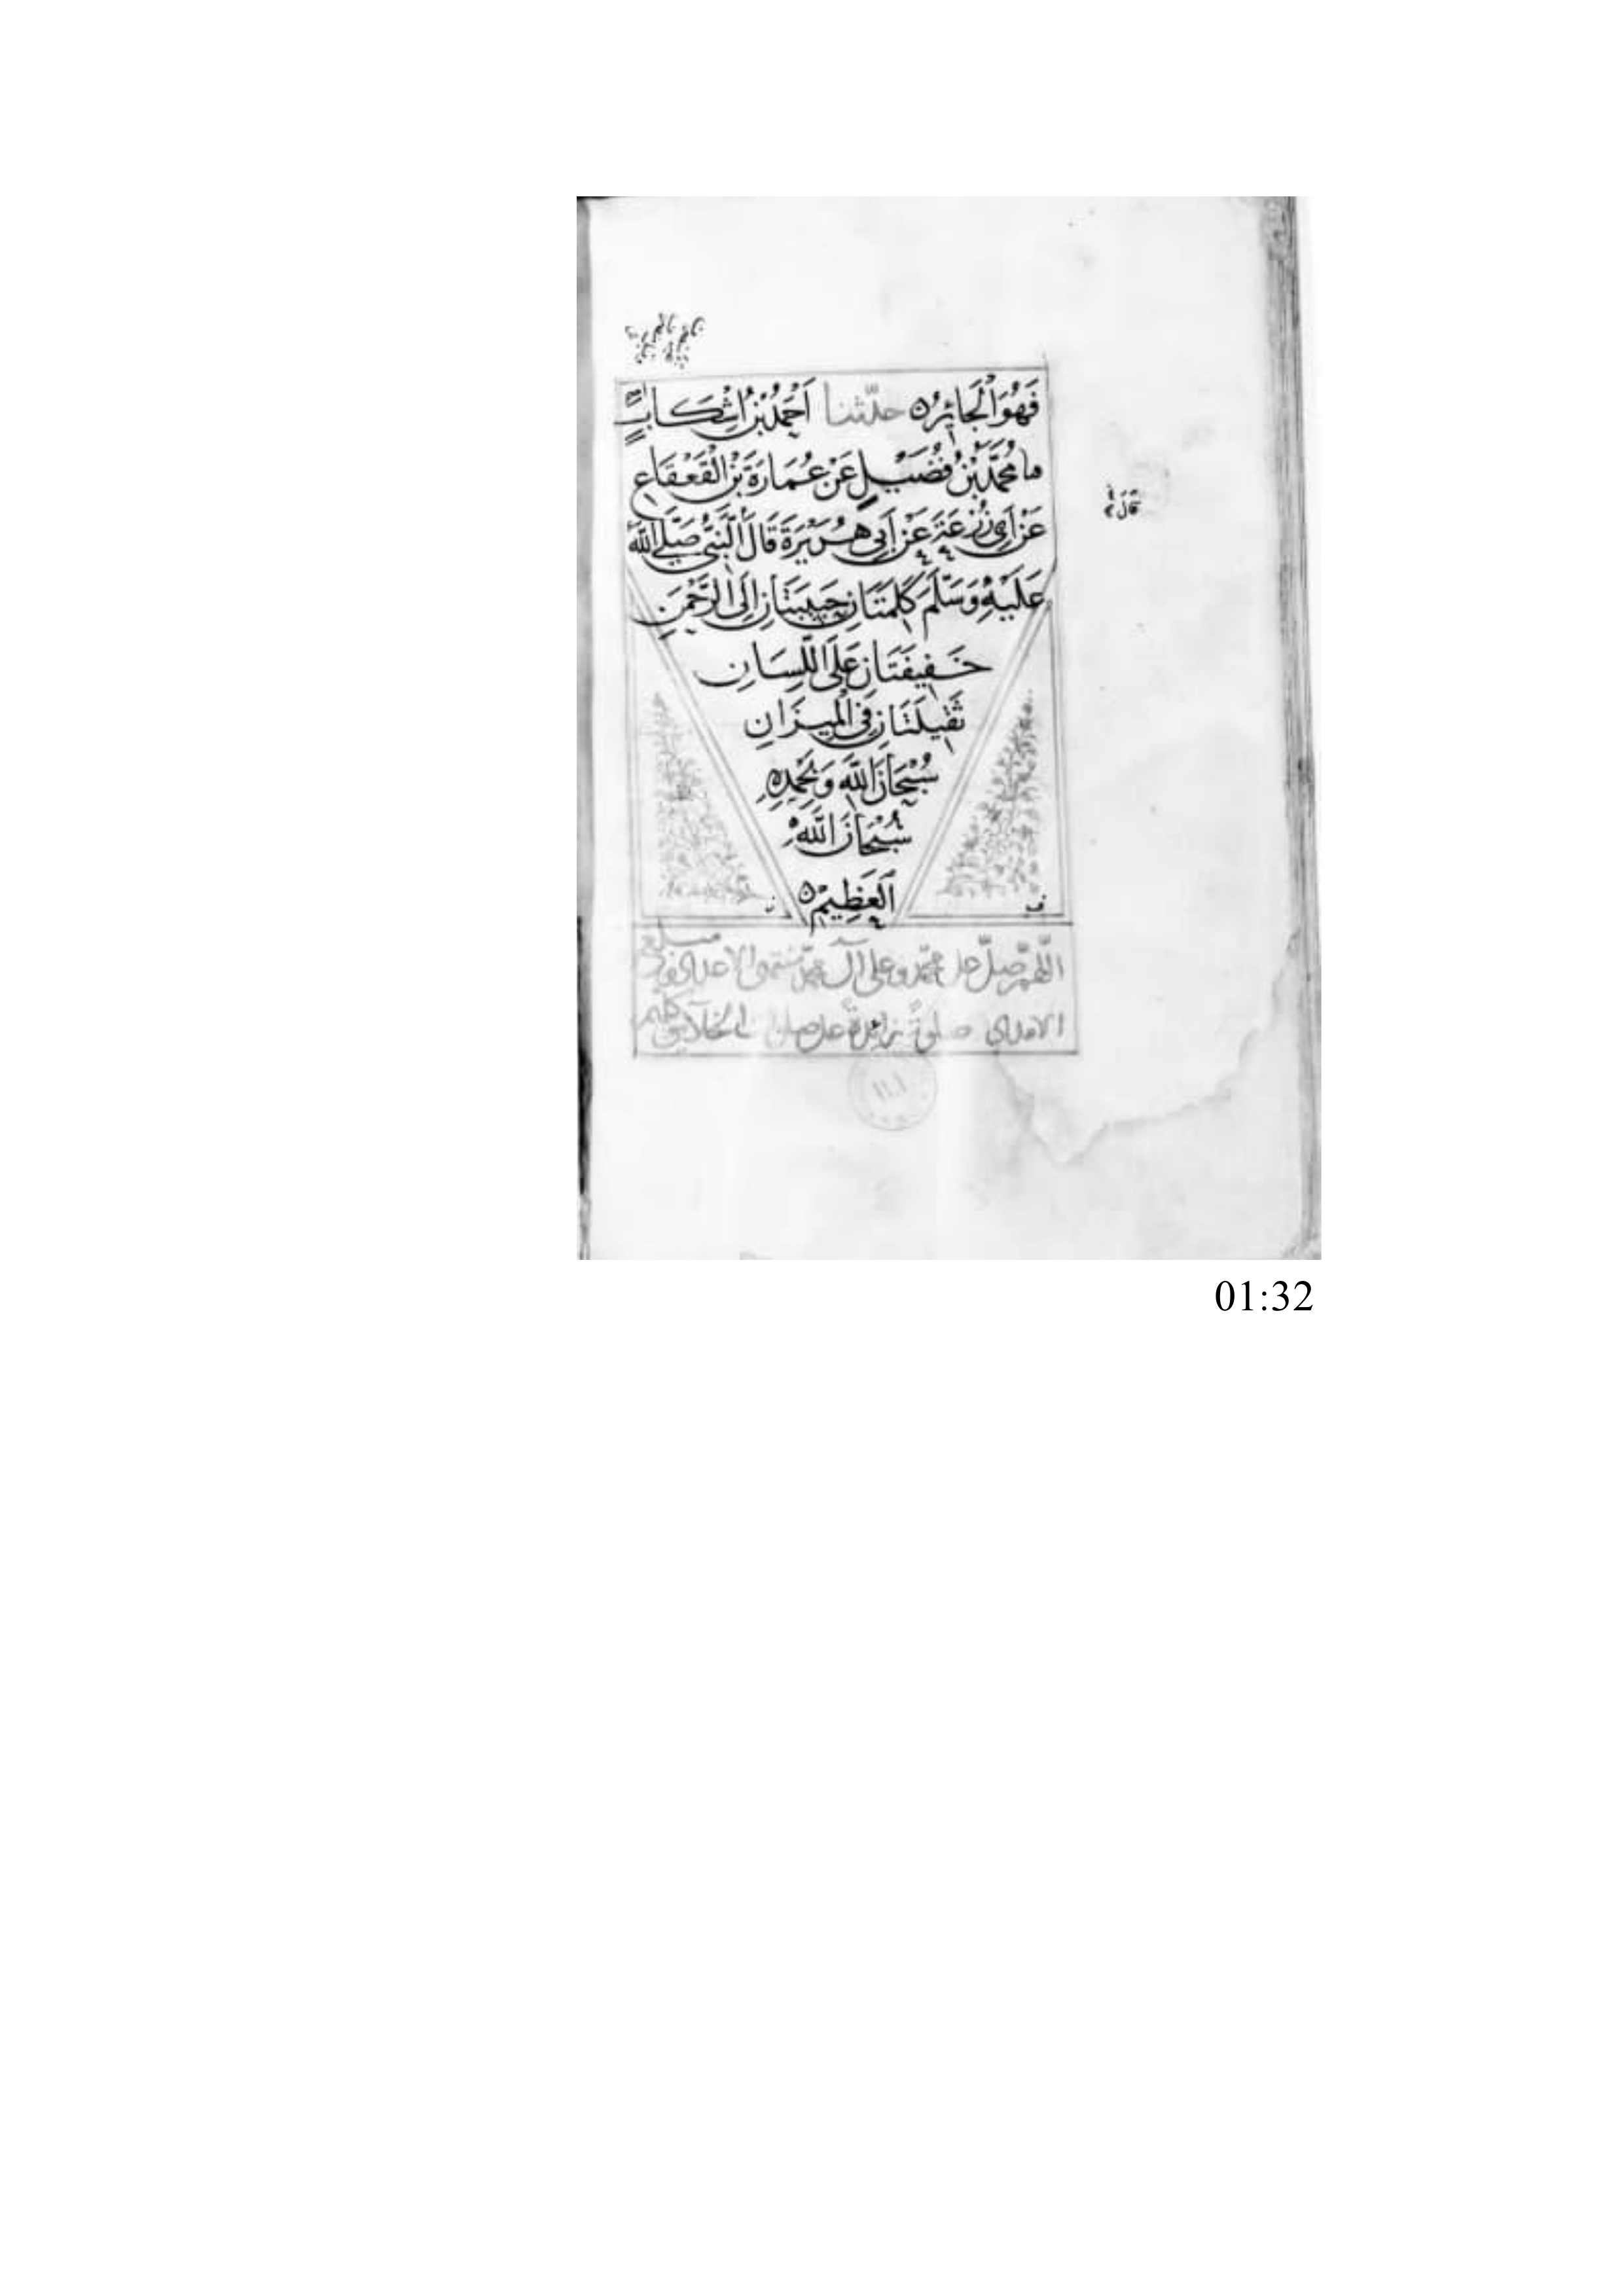 فَهُوَ الْجَائِرُ ه حدّثنا اَحْمَدُ بْنُ اِشْكَابٍ
نا مُحَمَّدُ بْنُ فُضَيْلٍ عَنْ عُمَارَةَ بْنِ الْقَعْقَاعِ
عَنْ اَبِي زُرْعَةَ عَنْ اَبِي هُرَيْرَةَ قَالَ النَّبِيُّ صَلَّى اللهُ
عَلَيْهِ وَسَلَّمَ كَلِمَتَانِ حَبِيبَتَانِ اِلَى الرَّحْمٰنِ
خَفِيفَتَانِ عَلَى اللِّسَانِ
ثَقِيلَتَانِ فِي الْمِيزَانِ
سُبْحَانَ اللهِ وَبِحَمْدِهِ
سُبْحَانَ اللهِ
الْعَظِيمِ ه
اللّهمّ صلّ على محمّد وعلى آل محمّد
صلوةً زائدةً على
قَالَ
01:32